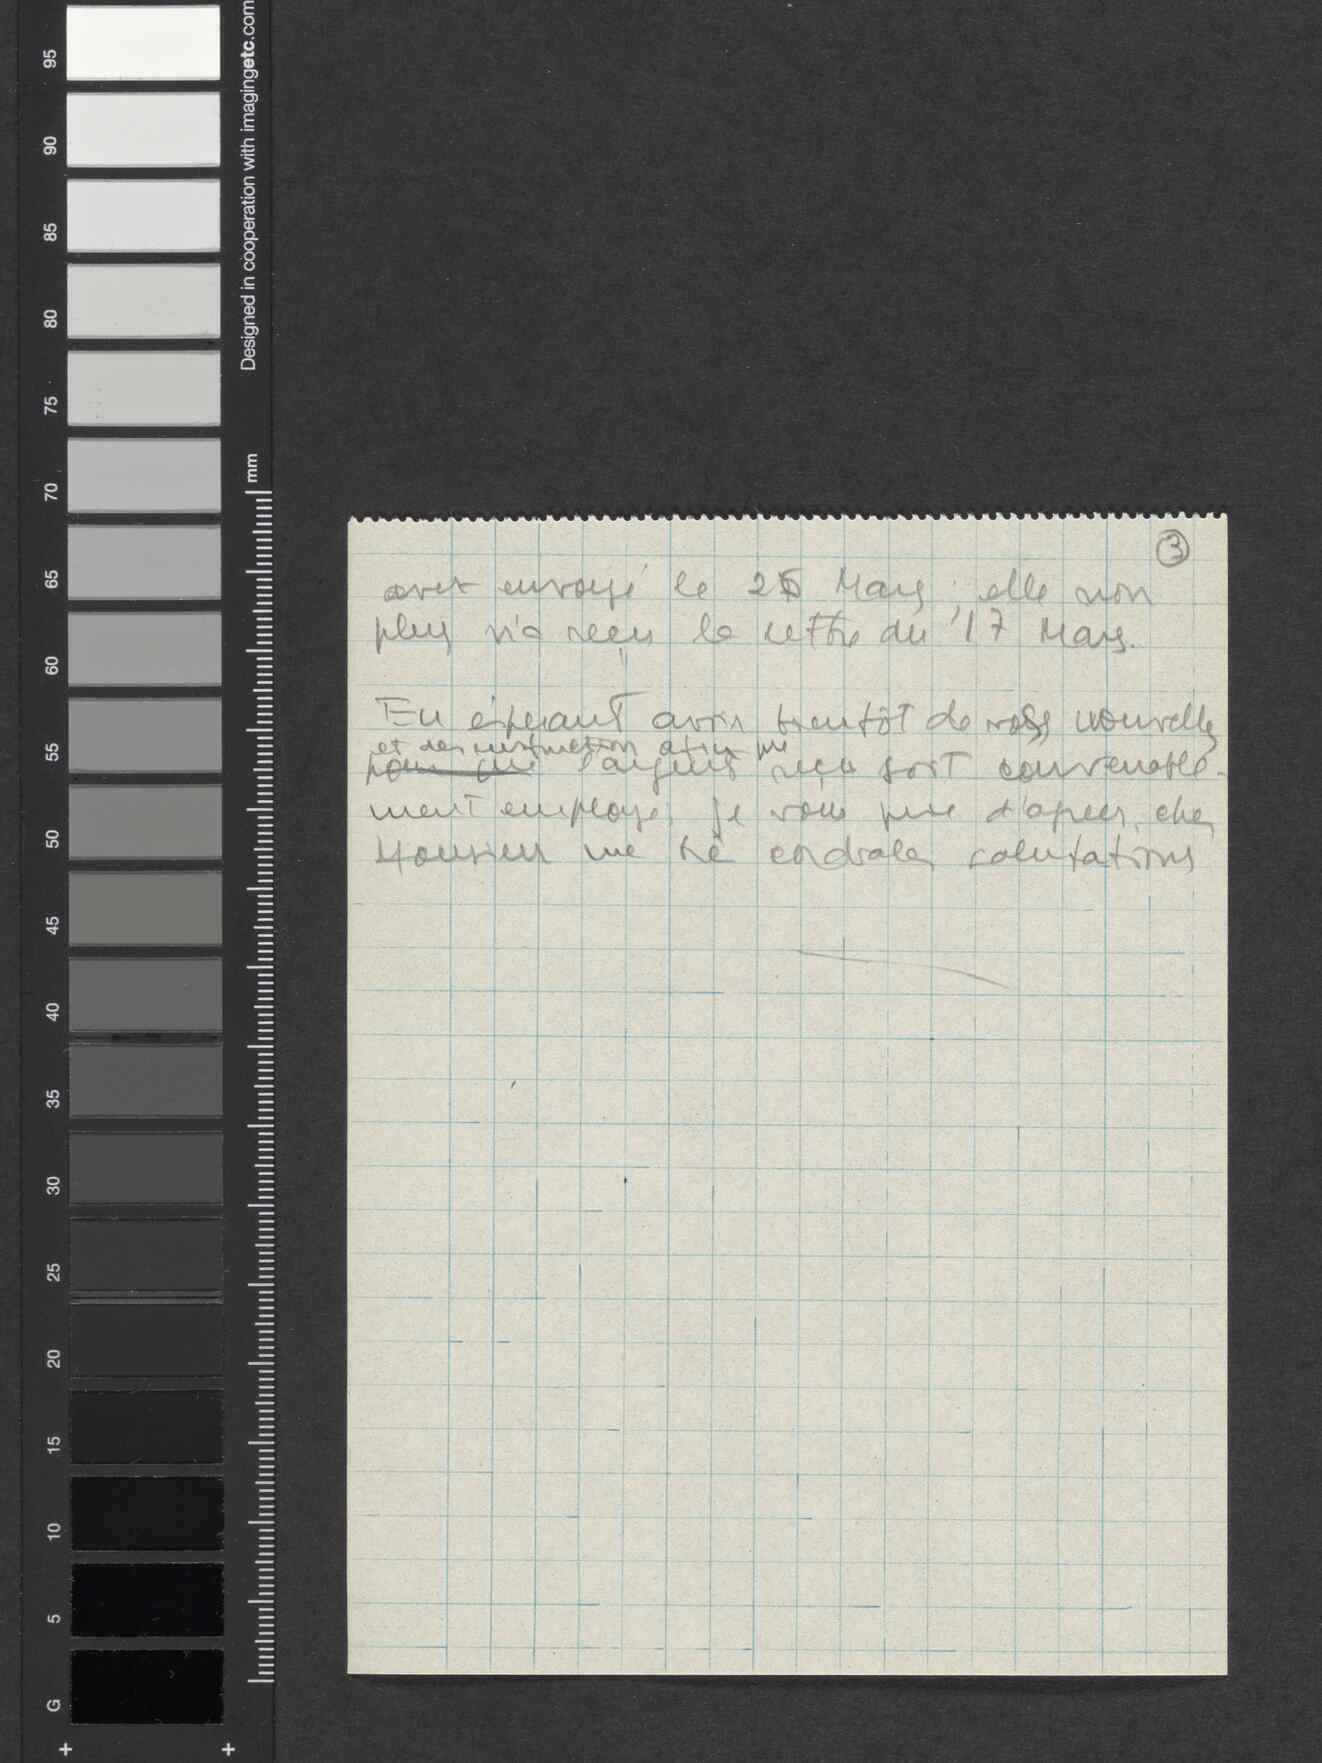 3
avez envoyé le 25 Mars ; elle non
plus n'a reçu la lettre du 17 Mars.
En espérant avoir bientôt de vos nouvelles
et des instructions afin que
pour que l'argent reçu soit convenable-
ment employé, je vous prie d'agréer, cher
Monsieur me trè cordiales salutations
Designed in cooperation with imagingetc.com
mm
95
90
85
80
75
70
65
60
55
50
45
40
35
30
25
20
15
10
5
G